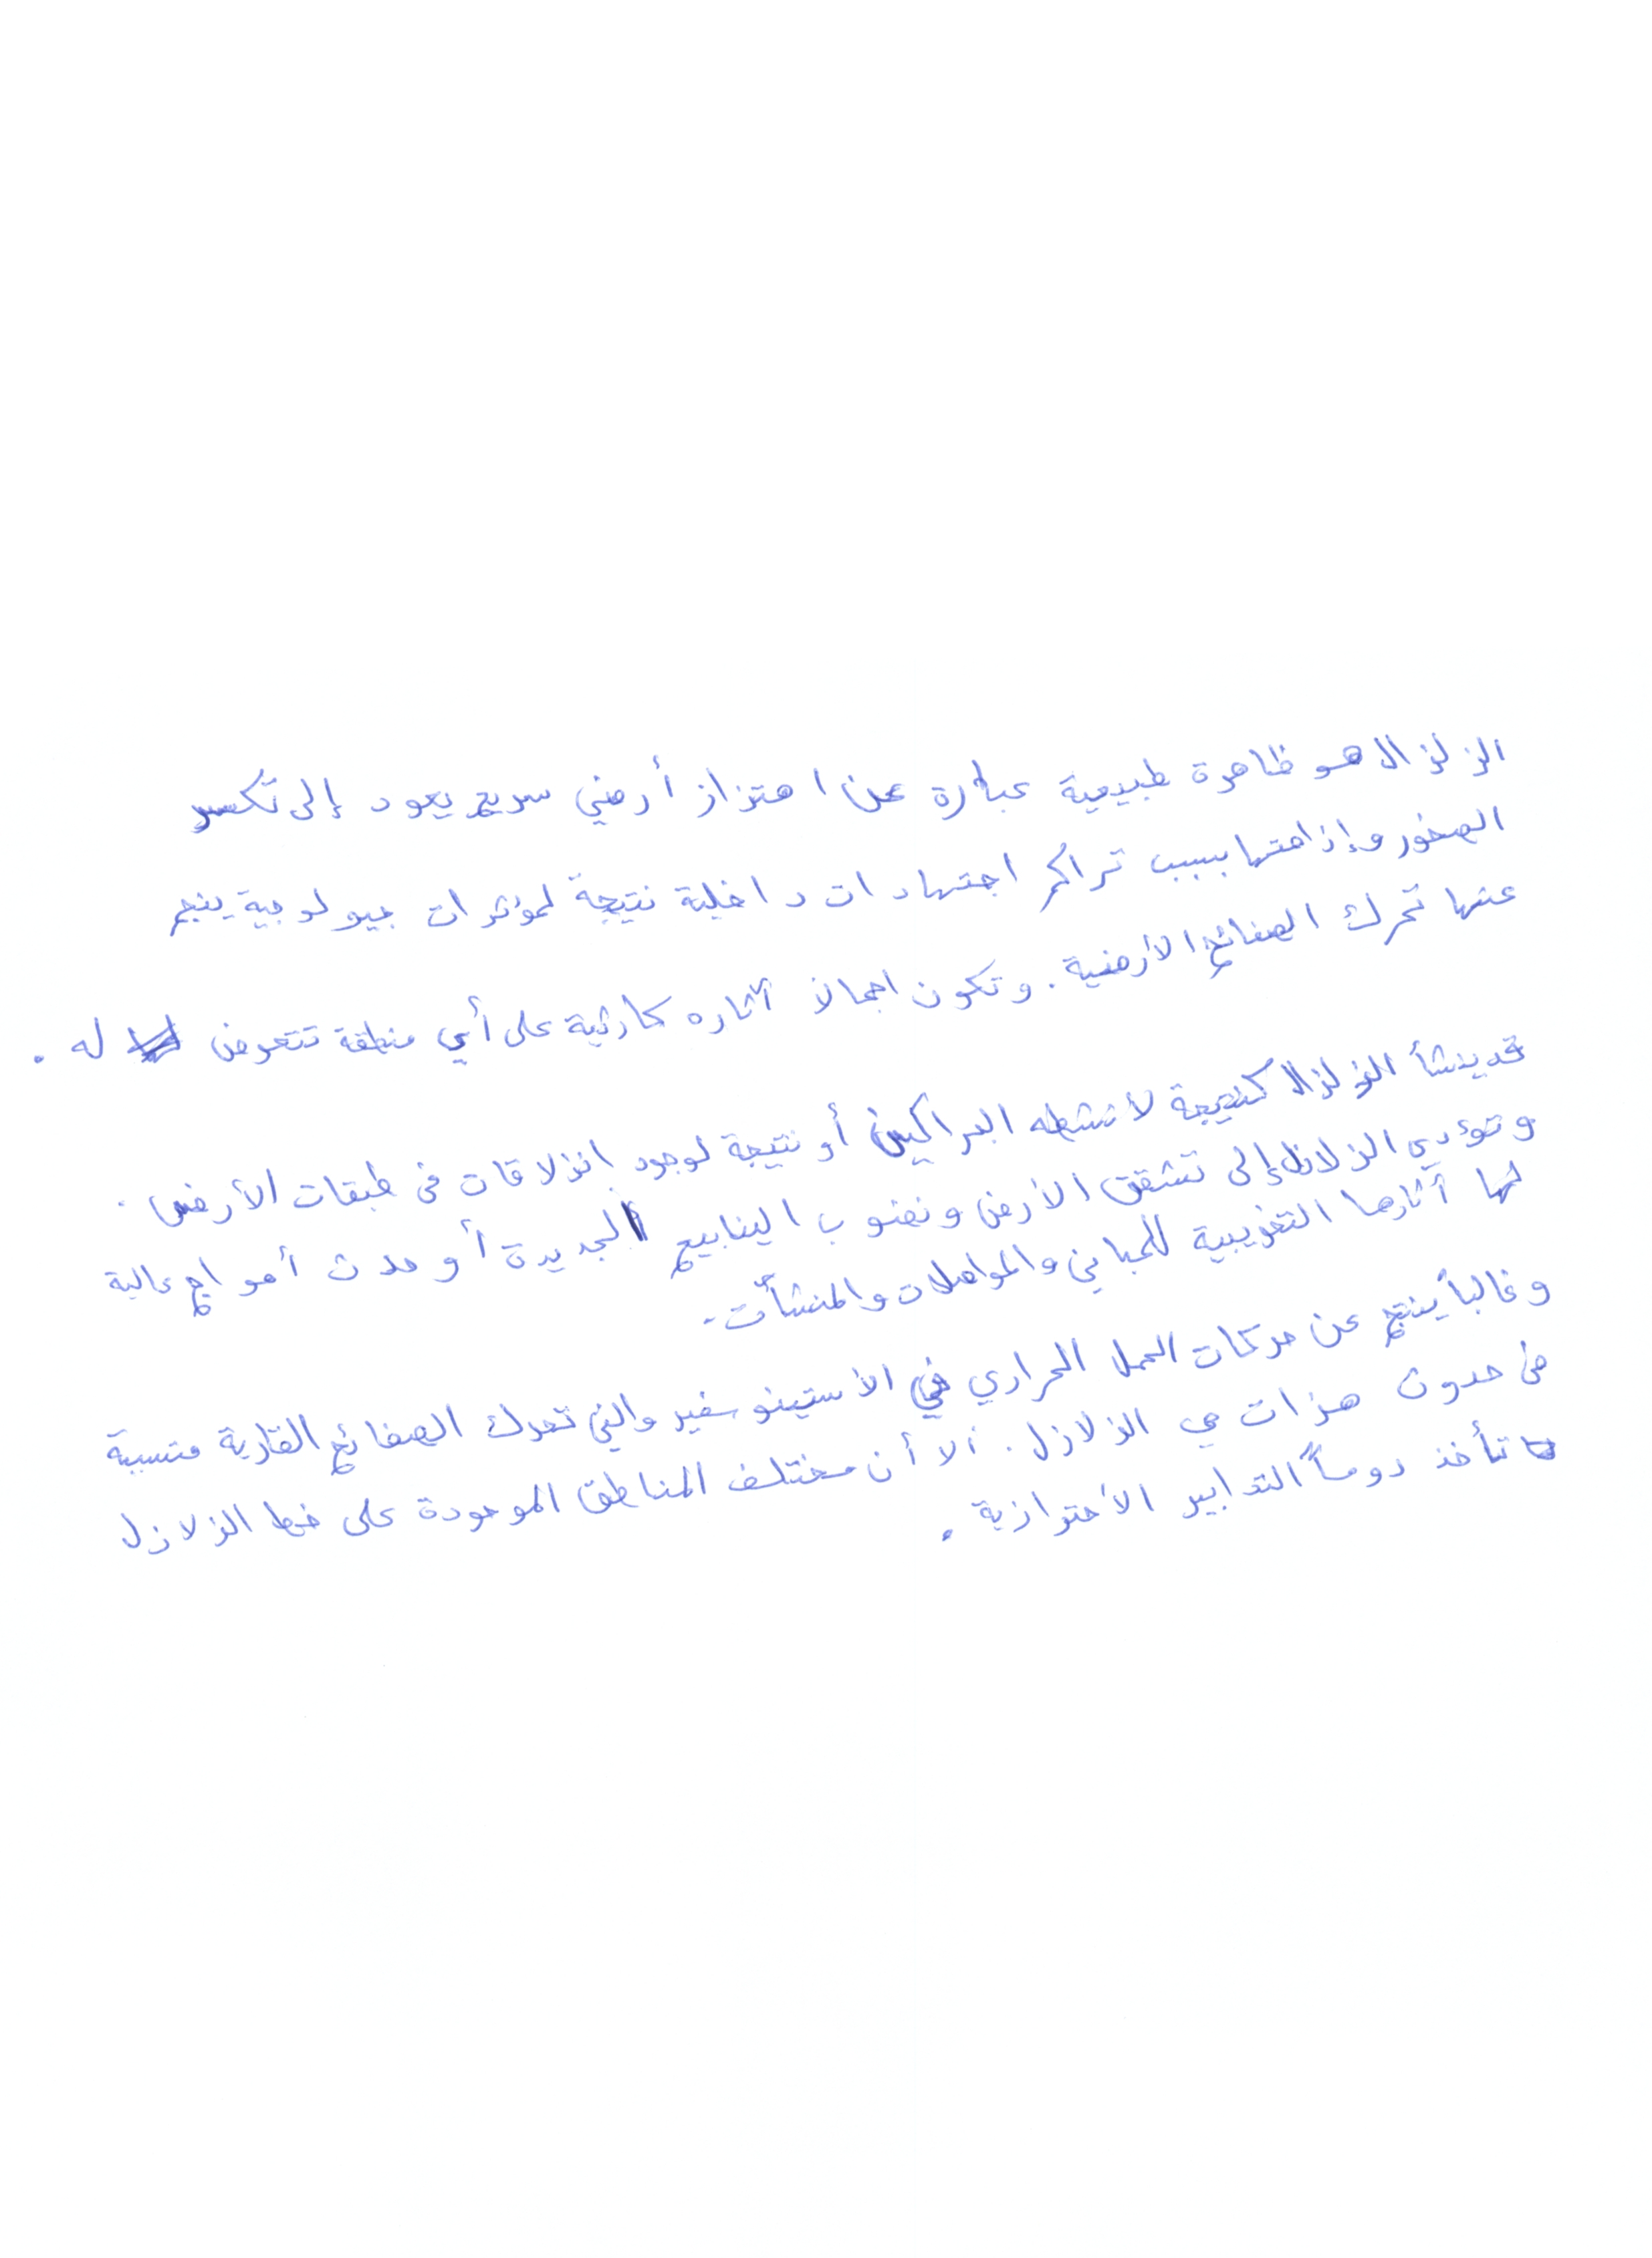 الزلزال هو ظاهرة طبيعية عبارة عن اهتزاز أرضي سريع يعود إلى تكسر
الصخور وإزاحتها بسبب تراكم اجتهادات داخلية نتيجة لمؤثرات جيولوجية ينجم
عنها تحرك الصفائح الأرضية. وتكون اجمالاً آثاره كارثية على أي منطقة تتعرض له.
قد ينشأ الزلزال كنتيجة لأنشطه البراكين أو نتيجة لوجود انزلاقات في طبقات الأرض.
وتؤدي الزلازل إلى تشقق الأرض ونضوب الينابيع الجديدة أو حدث أمواج عالية
لها أثارها التخريبية للمباني والمواصلات والمنشآت.
وغالباً ينتج عن حركات الحمل الحراري في الأستينوسفير والتي تحرك الصفائح القارية متسببة
في حدوث هزات هي الزلازل. ألا أن مختلف المناطق الموجودة على خط الزلازل
تأخذ دوماً التدابير الأحترازية.